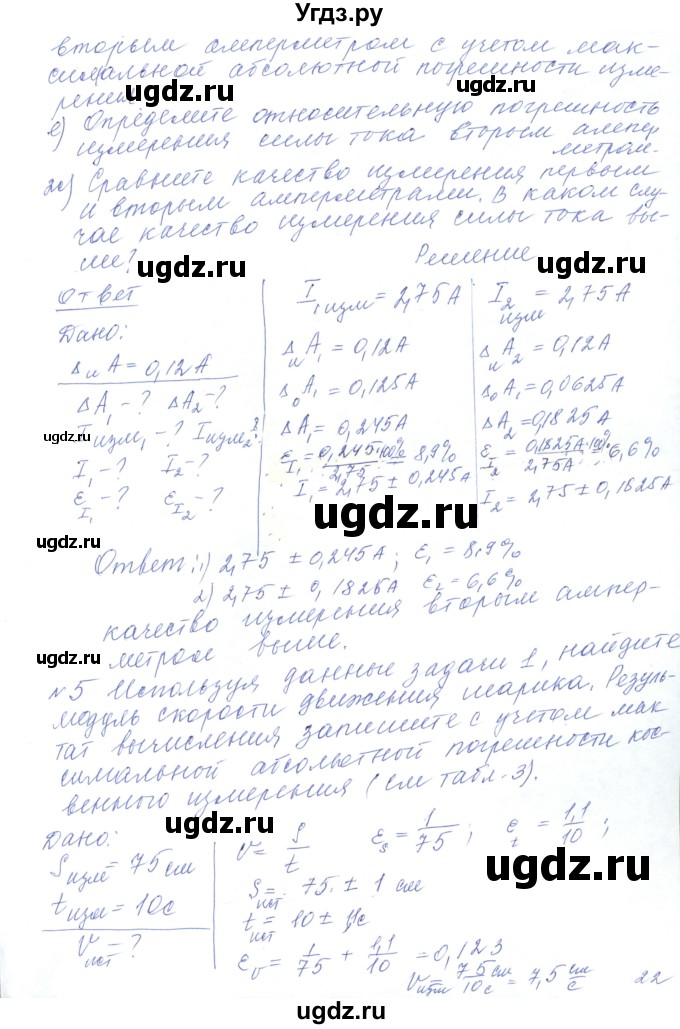 Угдз.ру
вторым амперметром с учетом мак-
симальной абсолютной погрешности изме-
рения
ugdz.ru ugdz.ru
е) Определите относительную погрешность
измерения силы тока вторым ампер
метром.
ж) Сравните качество измерения первым
и вторым амперметрами. В каком слу-
чае качество измерения силы тока вы-
ше?
ugdz.ru ugdz.ru
Решение
Ответ
Дано:
ΔиA = 0,12А
ΔA₁ - ? ΔA₂ - ?
Iизм₁ - ? Iизм₂ - ?
I₁ - ? I₂ - ?
εI₁ - ? εI₂ - ?
ugdz.ru
I₁изм = 2,75А
ΔиA₁ = 0,12А
Δ₀A₁ = 0,125А
ΔA₁ = 0,245А
εI₁ = 0,245·100% / 2,75 = 8,9%
I₁ = 2,75 ± 0,245А
I₂изм = 2,75А
ΔиA₂ = 0,12А
Δ₀A₁ = 0,0625А
ΔA₂ = 0,1825А
εI₂ = 0,1825А·100% / 2,75А = 6,6%
I₂ = 2,75 ± 0,1825А
ugdz.ru ugdz.ru
Ответ: 1) 2,75 ± 0,245А; ε₁ = 8,9%
2) 2,75 ± 0,1825А ε₂ = 6,6%
качество измерения вторым ампер-
метром выше.
ugdz.ru ugdz.ru
№5 Используя данные задачи 1, найдите
модуль скорости движения шарика. Резуль-
тат вычисления запишите с учетом мак
симальной абсолютной погрешности кос-
венного измерения (см табл. 3).
ugdz.ru ugdz.ru
Дано:
Sизм = 75 см
tизм = 10с
vист = ?
v = S / t
εs = 1/75; εt = 1,1/10;
Sист = 75 ± 1 см
tист = 10 ± 1,1с
εv = 1/75 + 1,1/10 = 0,123
vизм = 75см / 10с = 7,5 см/с
22
ugdz.ru ugdz.ru
ugdz.ru ugdz.ru ugdz.ru